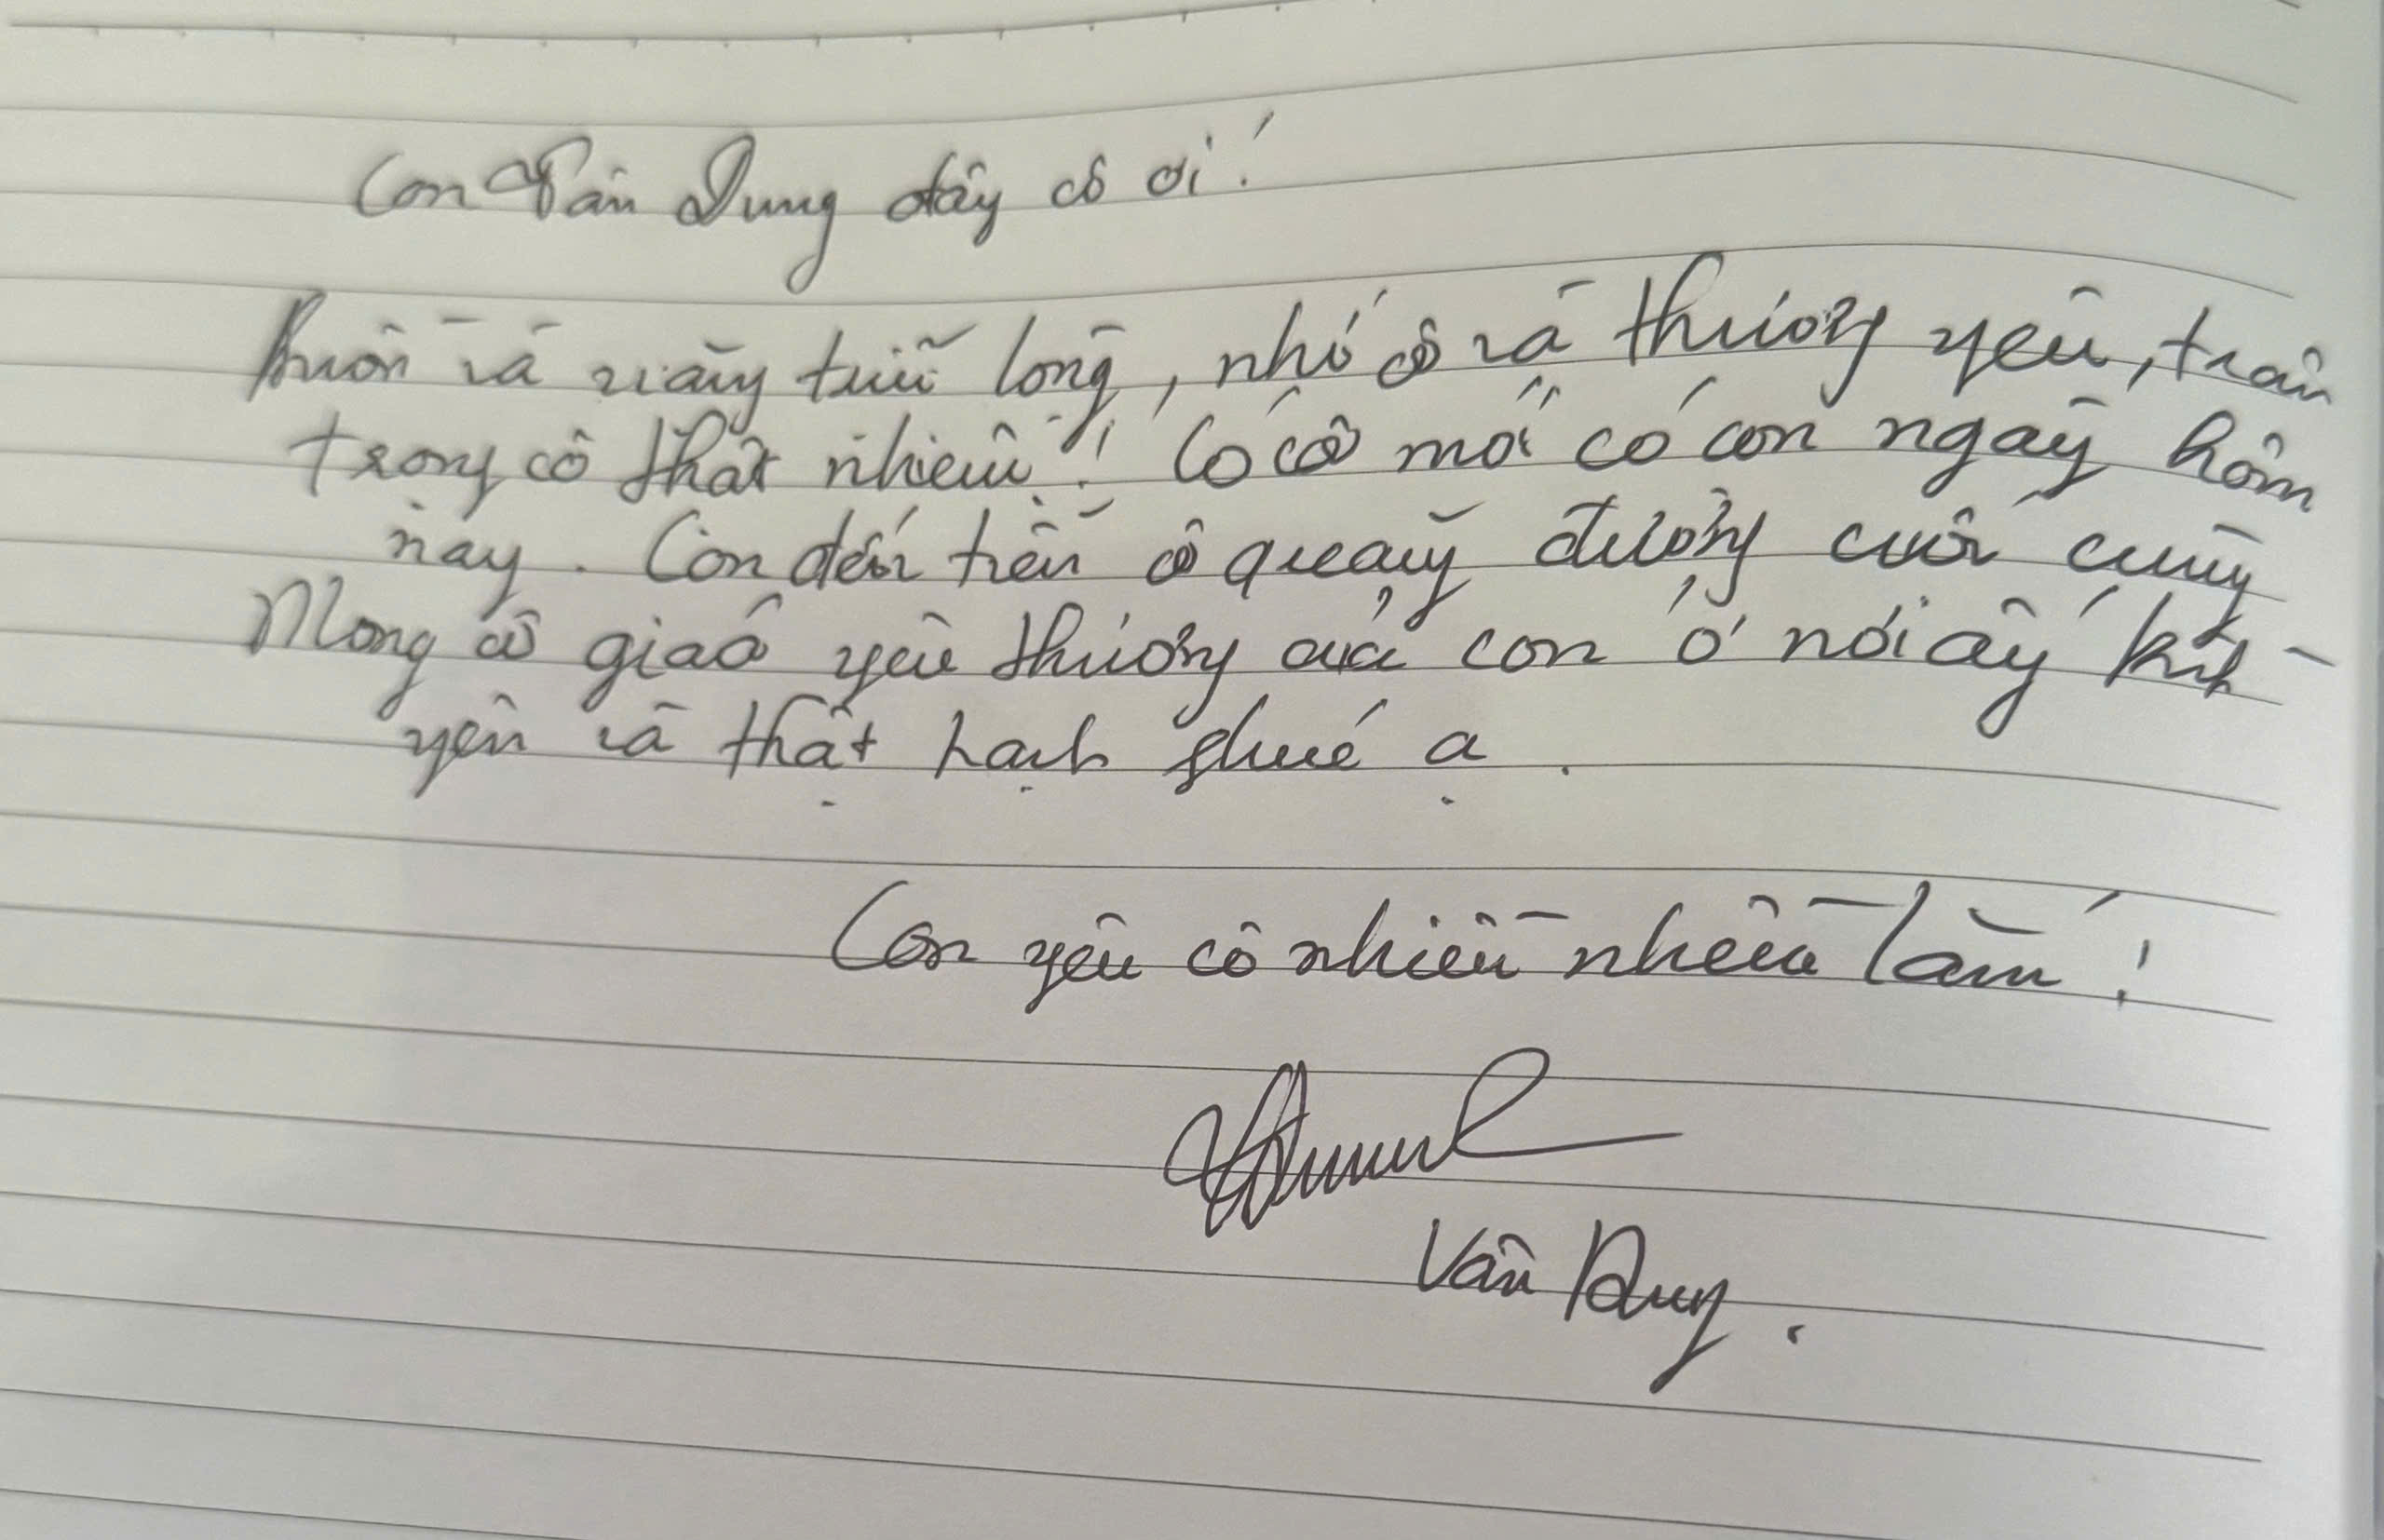 Con Vân Dung đây cô ơi!
Buồn và trằng trĩu lòng, nhớ cô và thương yêu, trân
trọng cô thật nhiều! Có cô mới có con ngày hôm
nay. Con đến tiễn cô quãng đường cuối cùng
Mong cô giáo yêu thương của con ở nơi ấy bình
yên và thật hạnh phúc ạ.
Con yêu cô nhiều nhiều lắm!
Vân Dung.